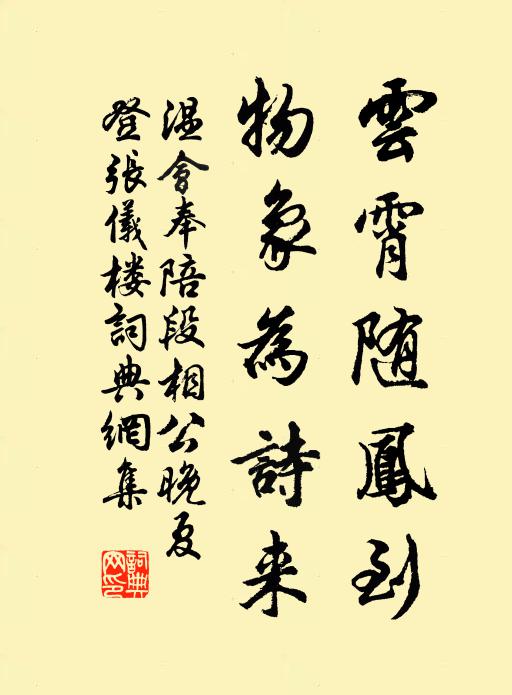 雲霄随鳳到
物象為詩来
温會奉陪段相公晚夏
登張儀楼詞典網集
詞典网印